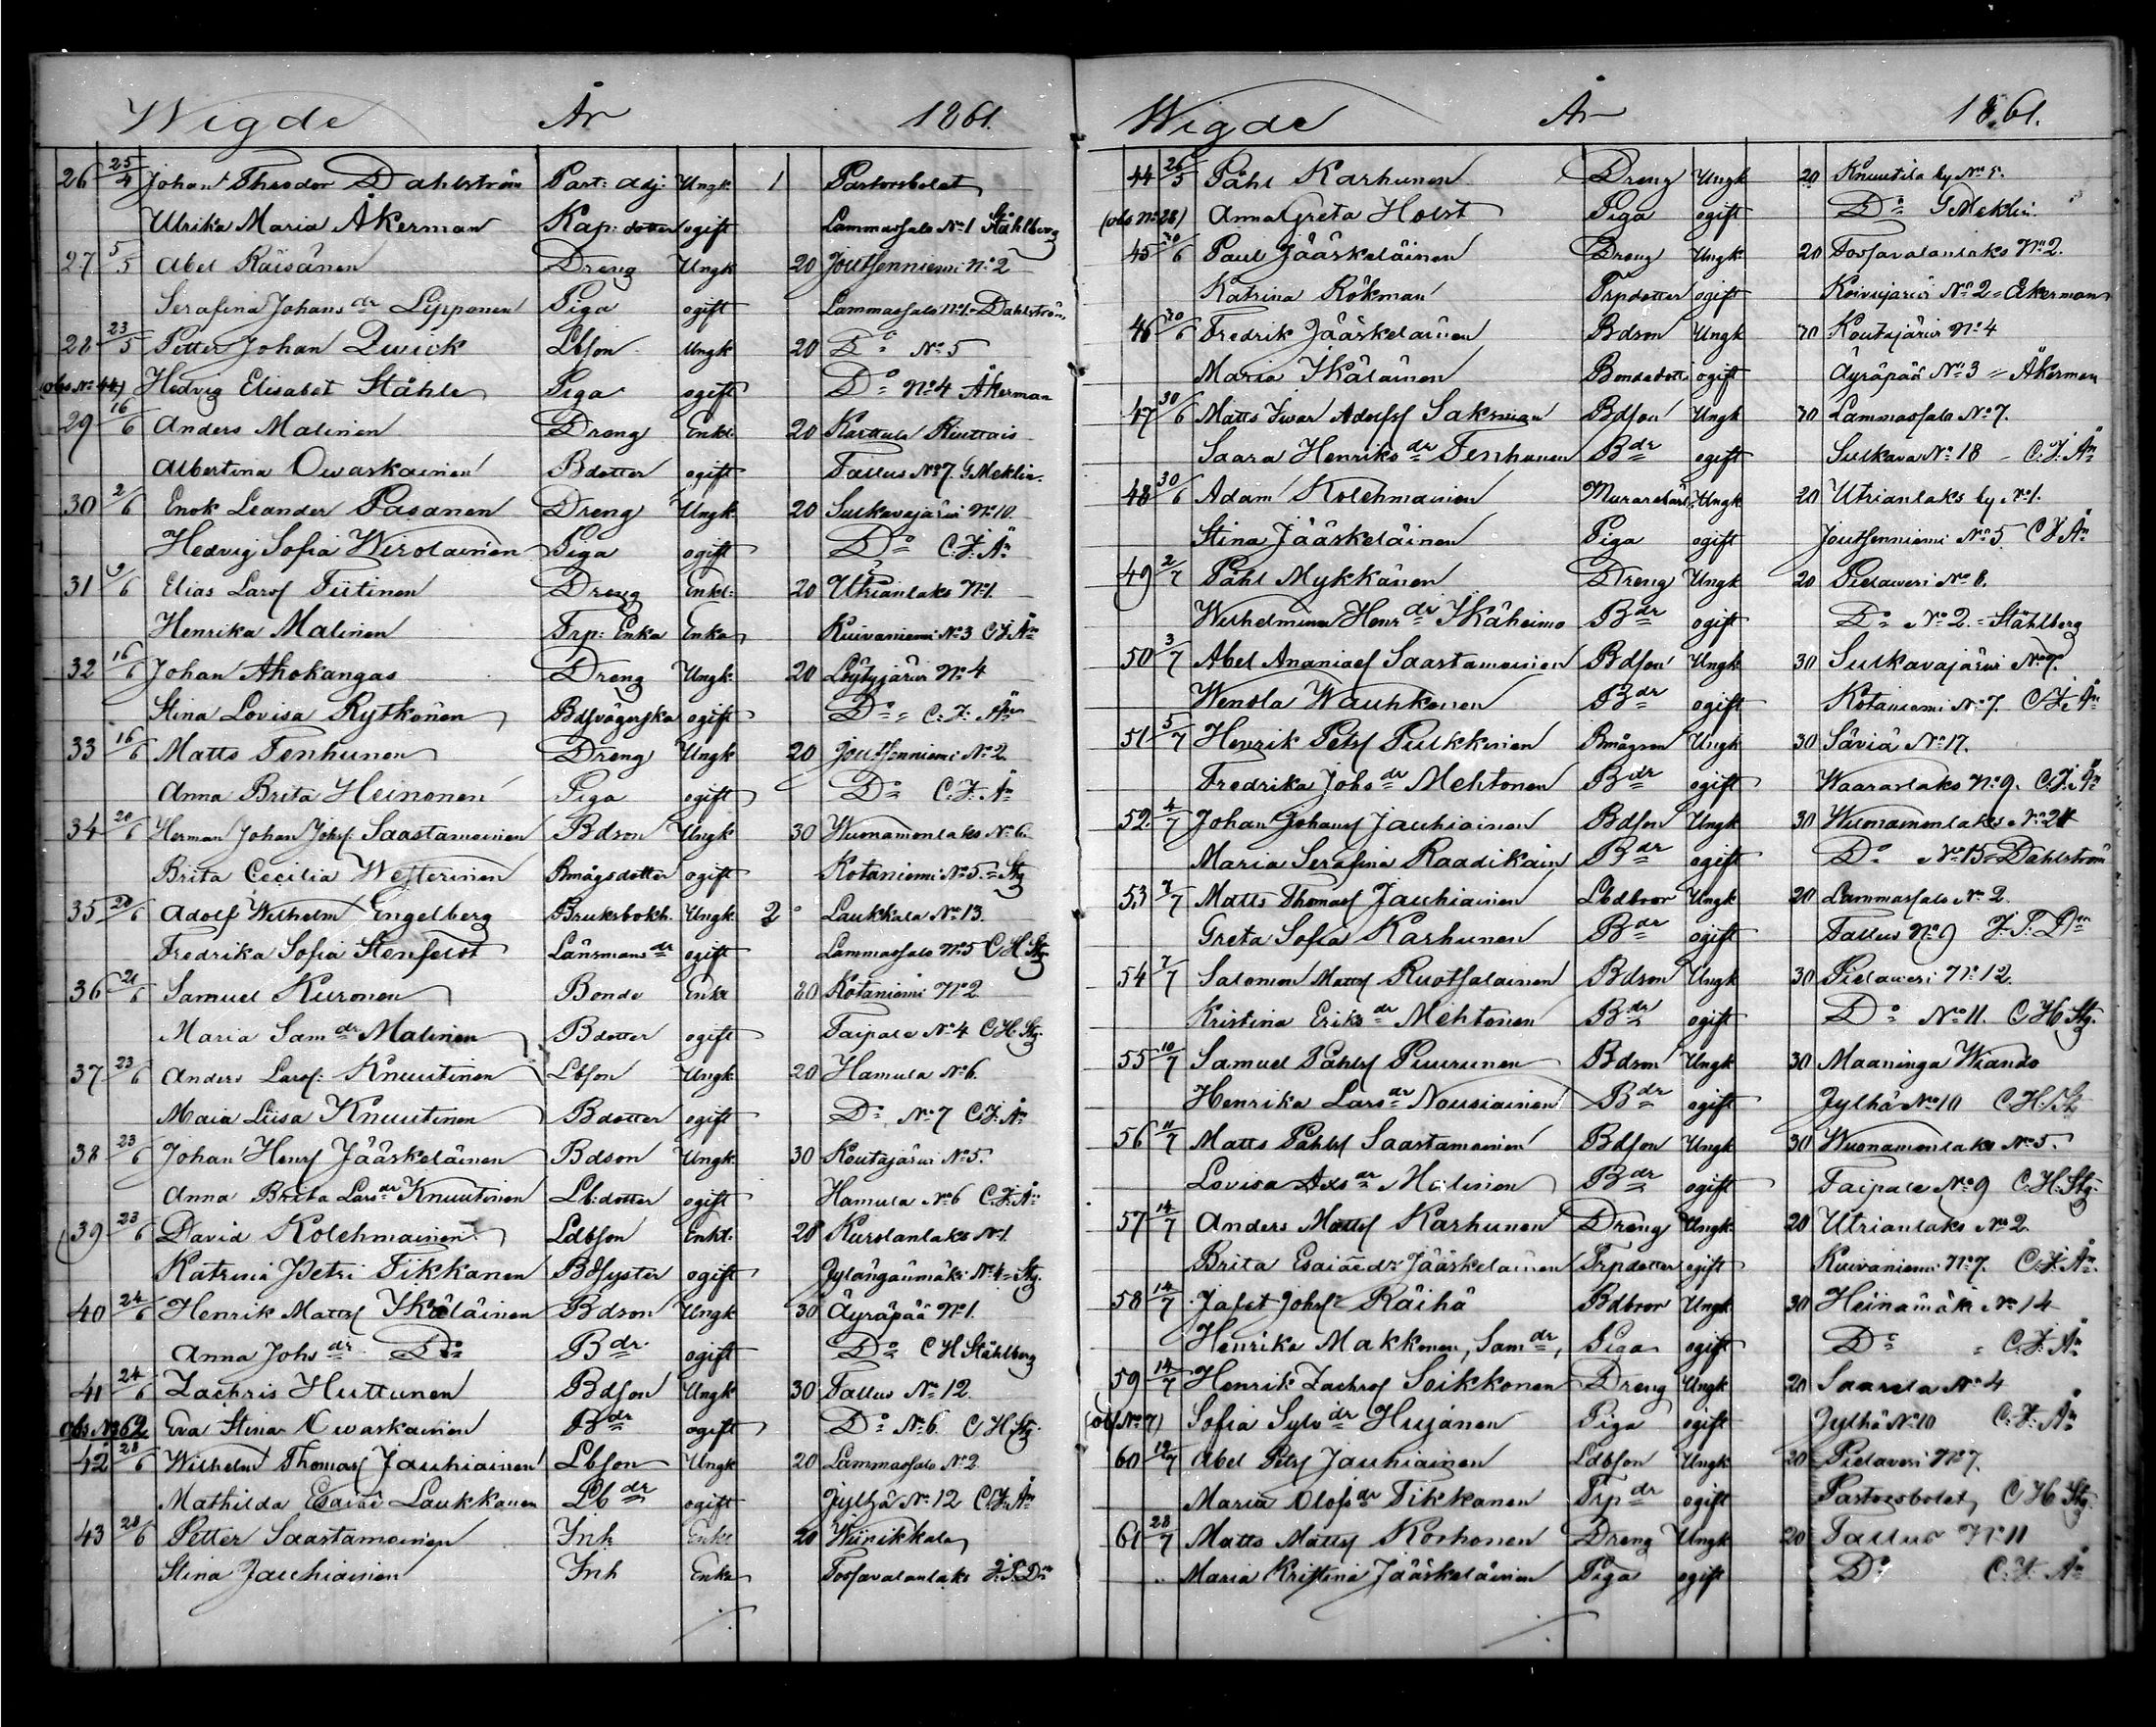 Wigde År 1861.
26 25/4 Johan Theodor Dahlström Past: adj: Ungk. 1 Pastorsbolet
Ulrika Maria Åkerman Kap: dotter ogift Lammassalo No 1 Ståhlberg
27 5/5 Abel Räisänen Dreng Ungk 20 Joutsenniemi No 2
Serafina Johans dr Lipponen Piga ogift Lammassalo No 1. Dahlström
28 23/5 Petter Johan Qwick Lbson Ungk 20 Do No 5
(obs No 44) Hedvig Elisabet Ståhle Piga ogift Do No 4 Åkerman
29 16/6 Anders Malinen Dreng Enkl. 20 Karttula Riuttais
Albertina Owaskainen Bdotter ogift Tallus No 7 G Meklin.
30 2/6 Enok Leander Pasanen Dreng Ungk. 20 Sulkavajärwi No 10.
Hedvig Sofia Wirolainen Piga ogift Do C. J. Ån
31 9/6 Elias Larss Tiitinen Dreng Enkl: 20 Utrianlaks No 1.
Henrika Malinen Trp: Enka Enka Kuivaniemi No 3 C J. Ån
32 16/6 Johan Ahokangas Dreng Ungk. 20 Löytyjärwi No 4
Stina Lovisa Rytkönen Bdsvägerska ogift Do = C. J. Ån
33 16/6 Matts Tenhunen Dreng Ungk 20 Joutsenniemi No 2
Anna Brita Heinonen Piga ogift Do C. J. Ån
34 20/6 Herman Johan Johss. Saastamoinen Bdson Ungk 30 Wuonamonlaks No 6.
Brita Cecilia Westerinen Bmågsdotter ogift Kotaniemi No 5. = Stg
35 20/6 Adolf Wilhelm Engelberg Bruksbokh. Ungk. 2 Laukkala No 13.
Fredrika Sofia Stenfeldt Länsmans dr ogift Lammassalo No 5 C H Stg.
36 21/6 Samuel Kuronen Bonde Enkl 30 Kotaniemi No 2
Maria Sam dr Malinen Bdotter ogift Taipale No 4 C H. Stg.
37 23/6 Anders Larss: Knuutinen Lbson Ungk. 20 Hamula No 6.
Maia Liisa Knuutinen Bdotter ogift Do No 7 C. J. Ån
38 23/6 Johan Henrs Jääskeläinen Bdson Ungk. 30 Koutajärwi No 5.
Anna Brita Lars dr Knuutinen Lb: dotter ogift Hamula No 6 C. J. Ån
39 23/6 David Kolehmainen Ldbson Enkl. 20 Kurolanlaks No 1
Katrina Petri Tikkanen Bdsyster ogift Jylängänmäki No 4 = Stg.
40 24/6 Henrik Matts Ikäläinen Bdson Ungk 30 Äyräpää No 1.
Anna Johs dr Do B dr ogift Do C H Ståhlberg
41 24/6 Zachris Huttunen Bdson Ungk 30 Tallus No 12.
Obs No 62 Eva Stina Owaskainen B dr ogift Do No 6. C H Stg.
42 28/6 Wilhelm Thomass Jauhiainen Lbson Ungk 20 Lammassalo No 2
Mathilda Esaiæ Laukkanen Lb dr ogift Jylhä No 12 C. J. Ån
43 28/6 Petter Saastamoinen Inh Enkl 20 Wiinikkala
Stina Jauhiainen Inh Enka Tossavalanlaks J. P. Dm
Wigde År 1861.
44 26/5 Påhl Karhunen Dreng Ungk 20 Knuutila by No 5.
(obs No 28) Anna Greta Holst Piga ogift Do G Meklin
45 20/6 Paul Jääskeläinen Dreng Ungk 20 Tossavalanlaks No 2.
Katrina Rökman Trpdotter ogift Koivujärwi No 2 = Åkerman
46 30/6 Fredrik Jääskeläinen Bdson Ungk 30 Koutajärwi No 4
Maria Ikäläinen Bondedott ogift Äyräpää No 3 = Åkerman
47 30/6 Matts Iwar Adolfss Saksman Bdson Ungk 30 Lammassalo No 7.
Saara Henriks dr Tenhunen B dr ogift Sulkava No 18 - C. J. Ån
48 30/6 Adam Kolehmainen Murarelärl. Ungk 20 Utrianlaks by No 1.
Stina Jääskeläinen Piga ogift Joutsenniemi No 5 C J Ån
49 2/7 Påhl Mykkänen Dreng Ungk 20 Pielaweri No 8.
Wilhelmina Henr dr Ikäheimo B dr ogift Do No 2. = Ståhlberg
50 3/7 Abel Ananiaes Saastamoinen Bdson Ungk 30 Sulkavajärwi No 9.
Wendla Wauhkonen B dr ogift Kotaniemi No 7. C J. Ån
51 5/7 Henrik Petss Pulkkinen Bmågson Ungk 30 Säviä No 17.
Fredrika Johs dr Mehtonen B dr ogift Waaraslaks No 9. C. J. Ån
52. 4/7 Johan Johanss Jauhiainen Bdson Ungk 30 Wuonamonlaks No 24
Maria Serafina Raadikain B dr ogift Do No 15 = Dahlström
53 7/7 Matts Thomass Jauhiainen Lbdbror Ungk 20 Lammassalo No 2.
Greta Sofia Karhunen B dr ogift Tallus No 9 J. P. Dm
54 7/7 Salomon Matss Ruotsalainen Bdson Ungk 30 Pielaweri No 12.
Kristina Eriks dr Mehtonen B dr ogift Do No 11. C H Stg.
55 10/7 Samuel Påhls Puurunen Bdson Ungk 30 Maaninga Wiando
Henrika Lars dr Nousiainen B dr ogift Jylhä No 10 C H. Stg
56 11/7 Matts Påhls Saastamoinen Bdson Ungk 30 Wuonamonlaks No 5.
Lovisa Ads dr Malinen B dr ogift Taipale No 9 C. H. Stg.
57 14/7 Anders Matts Karhunen Dreng Ungk 20 Utrianlaks No 2.
Brita Esaiædr Jääskeläinen Trpdotter ogift Kuivaniemi No 7. C. J. Ån.
58 14/7 Jafet Johss Räihä Bdbror Ungk 30 Heinämäki No 14
Henrika Makkonen, Sam dr, Piga ogift Do = C. J. Ån
59 14/7 Henrik Zachrss Soikkonen Dreng Ungk 20 Saarela No 4
(obs No 7) Sofia Sylv dr Hujanen Piga ogift Jylhä No 10 C. J. Ån
60 19/7 Abel Petss Jauhiainen Ldbson Ungk 20 Pielaveri No 7.
Maria Olofs dr Tikkanen Trp dr ogift Pastorsbolet, C H Stg.
61 28/7 Matts Matss Korhonen Dreng Ungk 20 Tallus No 11
Maria Kristina Jääskeläinen Piga ogift Do C. J. Ån